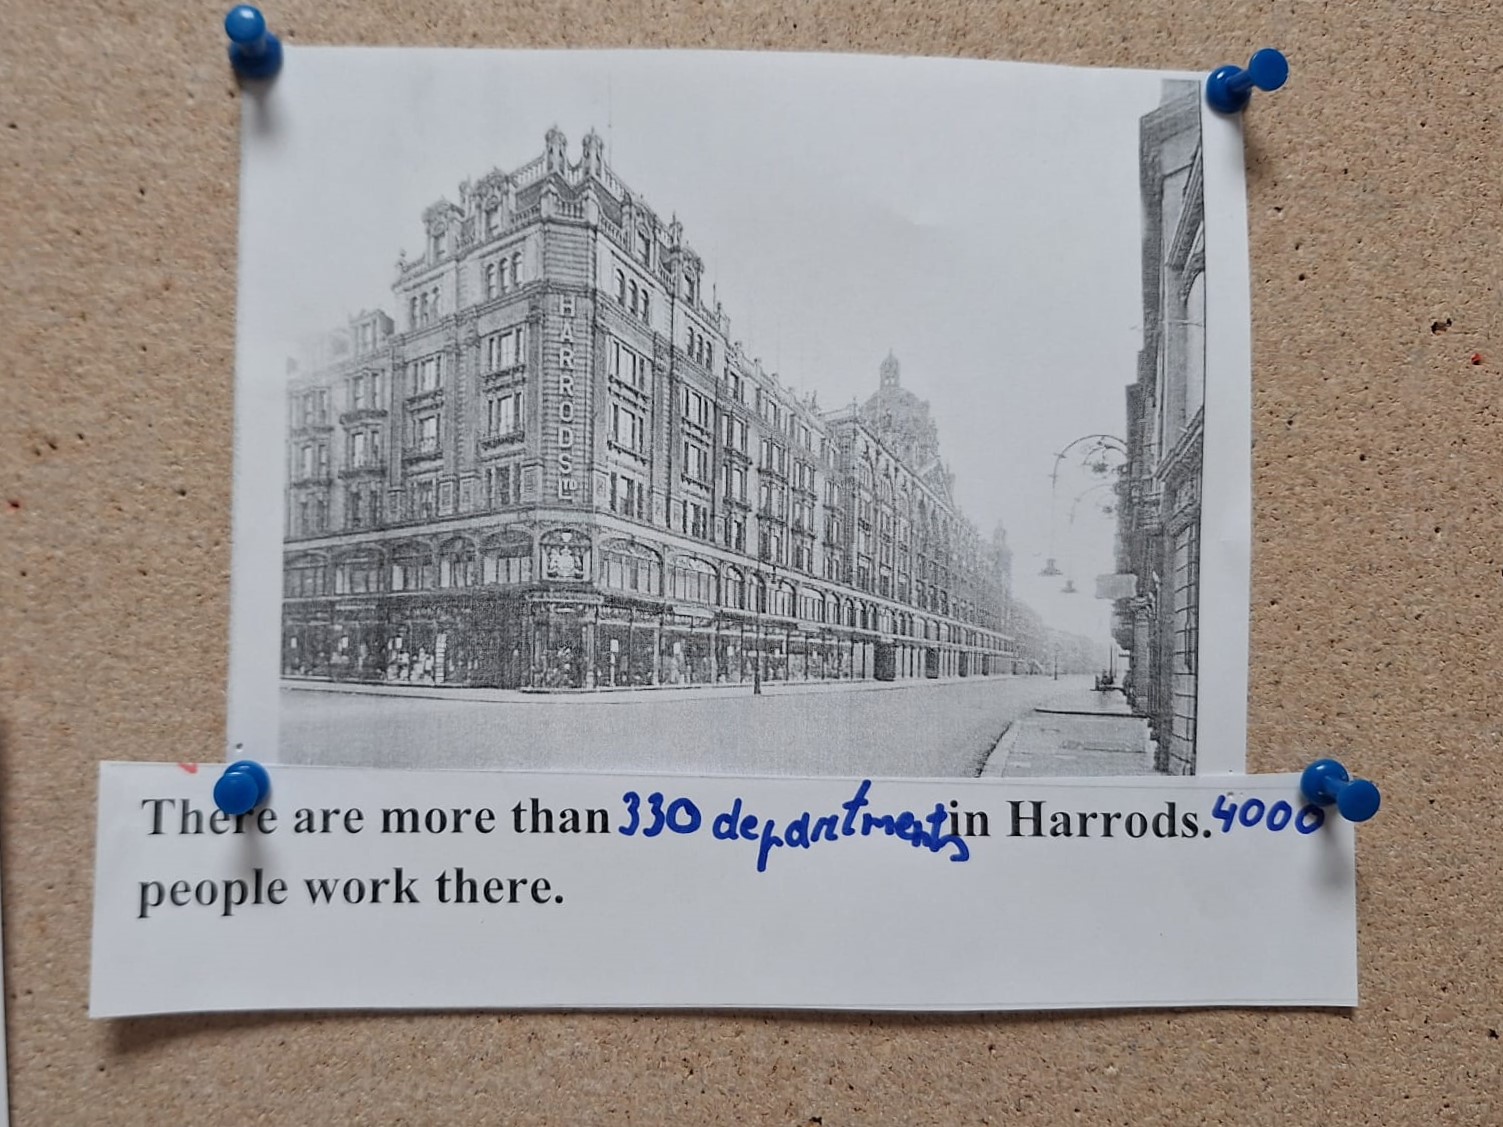 HARRODS LTD
There are more than 330 departments in Harrods. 4000
people work there.